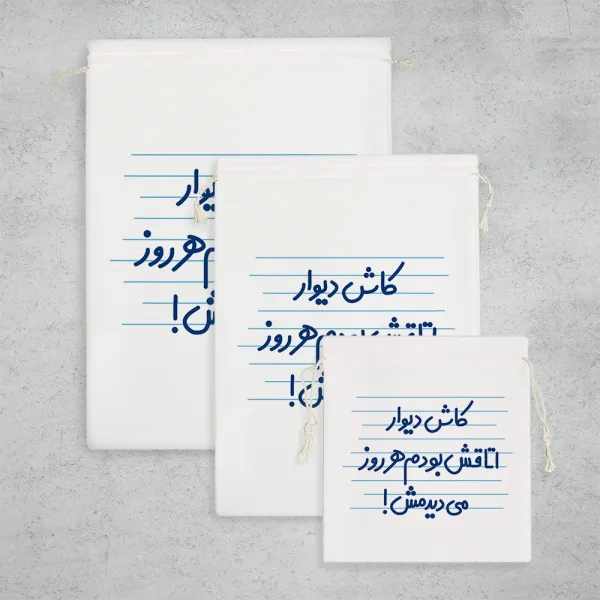 دیوار
هر روز
!
کاش دیوار
اتاقش بودم هر روز
!
کاش دیوار
اتاقش بودم هر روز
می دیدمش !